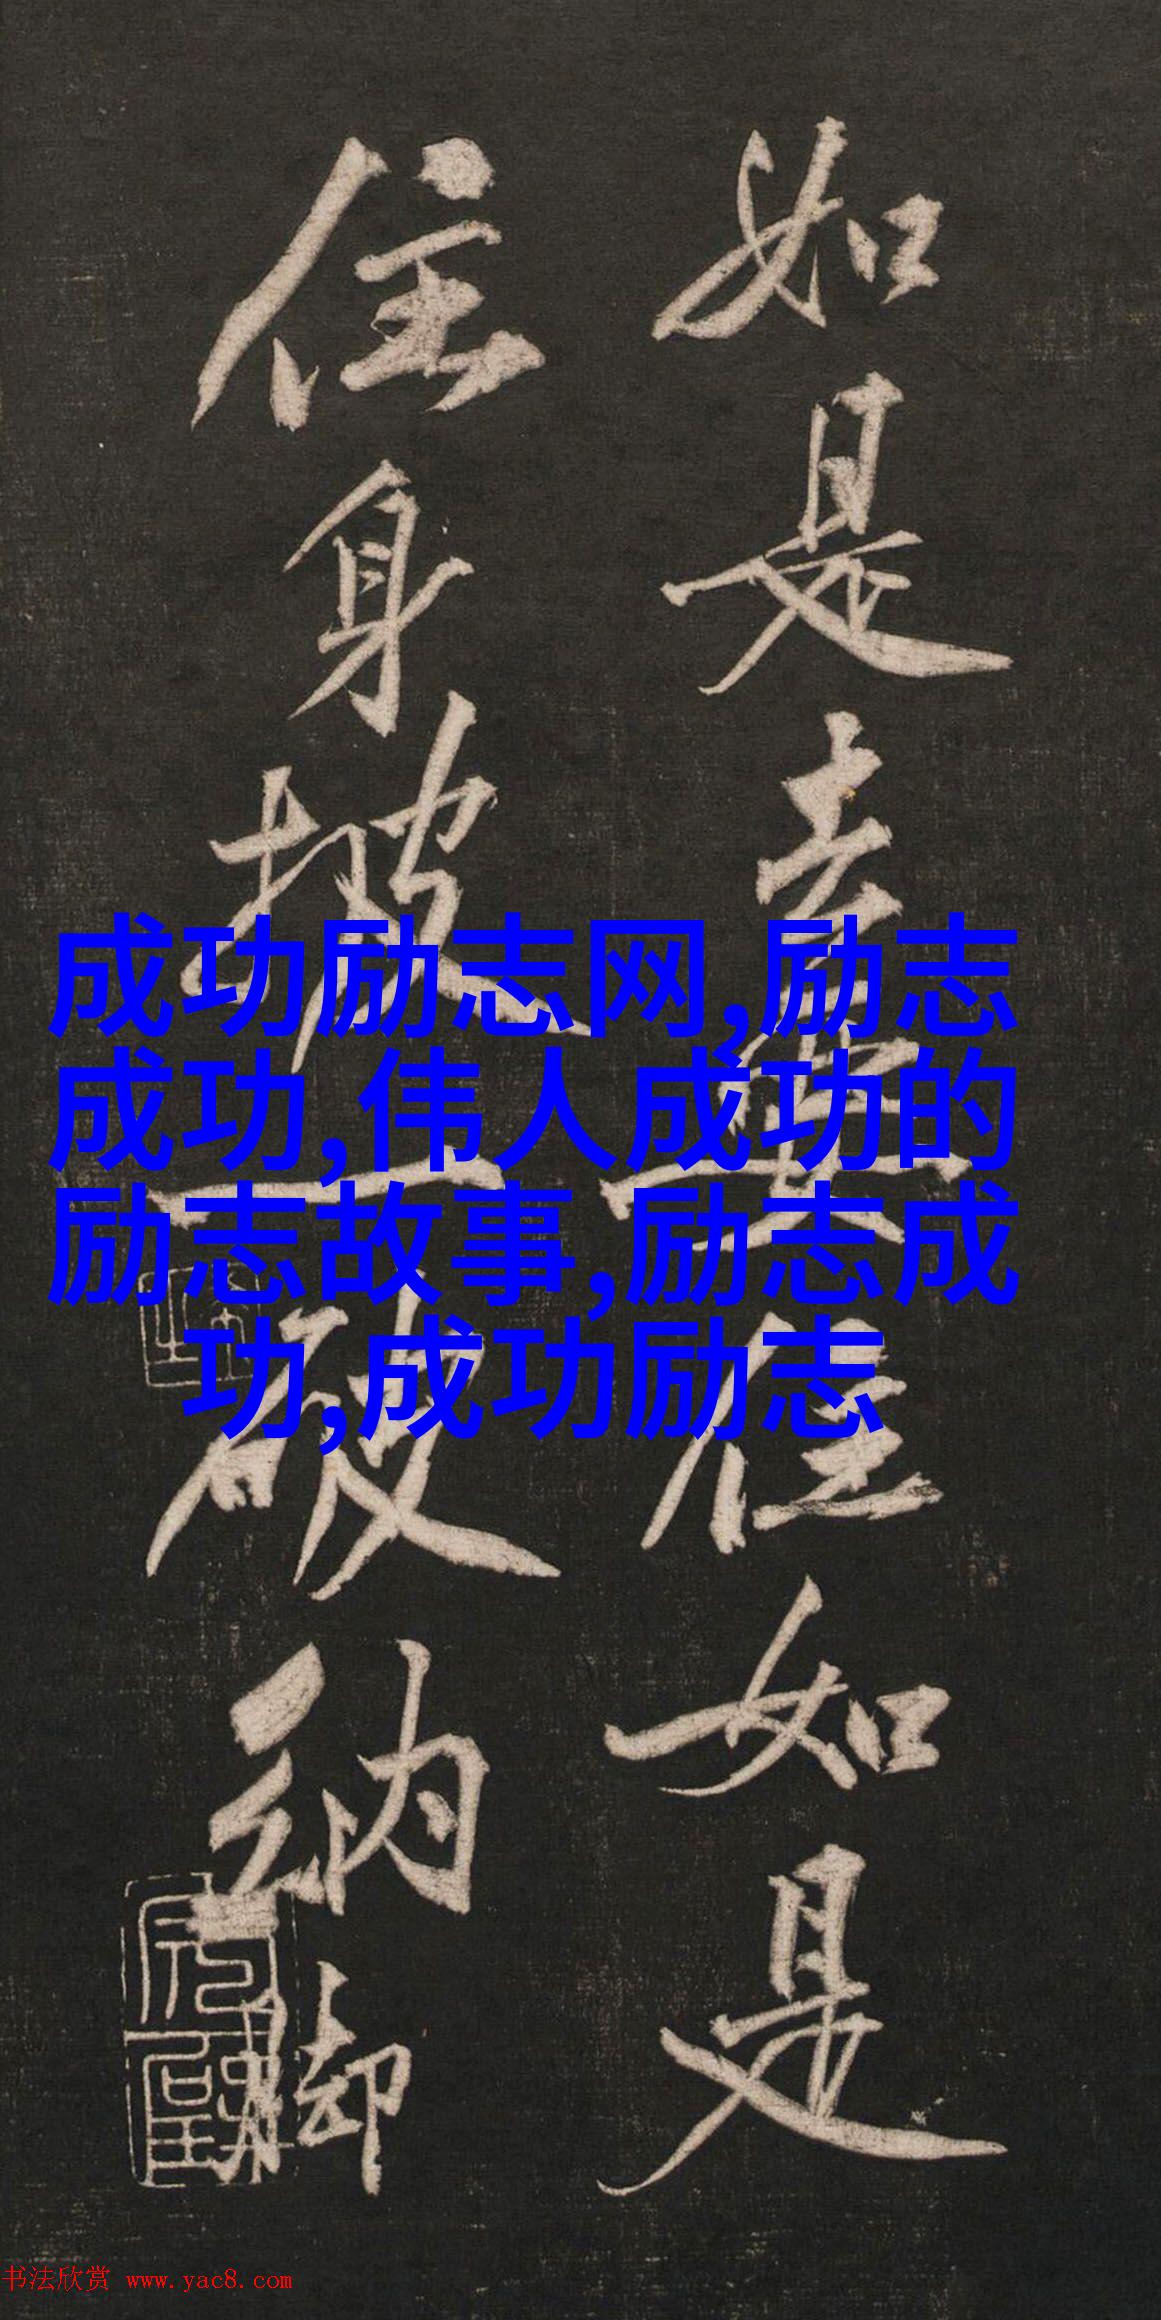 如是去住如是
住身披一破衲脚
成功励志网,励志
成功,伟人成功的
励志故事,励志成
功,成功励志
书法欣赏 www.yac8.com